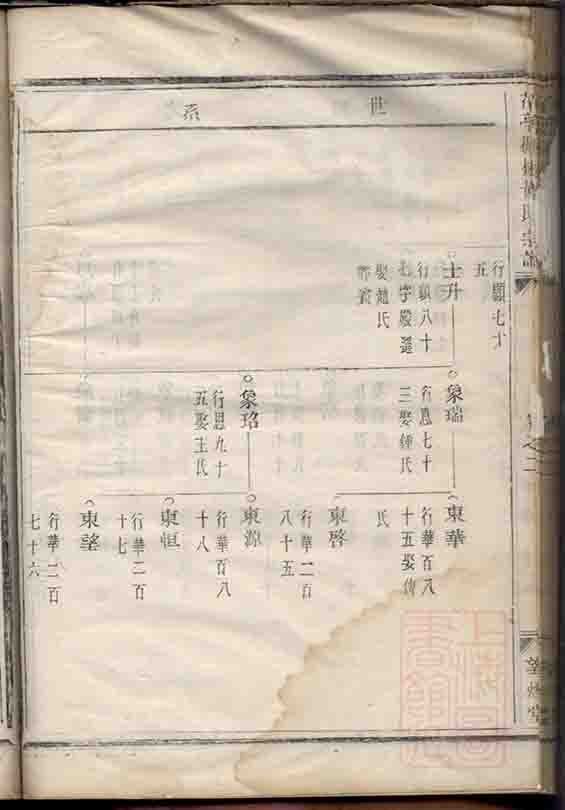 世系
行顯七十
五
士升
行顯八十
七字殿選
娶趙氏
象瑞
行恩七十
三娶鍾氏
東華
行華百八
十五娶傅
氏
東啓
行華二百
八十五
象珞
行恩九十
五娶王氏
東源
行華百八
十八
東恒
行華二百
十七
東望
行華二百
七十六
上海圖
書館藏